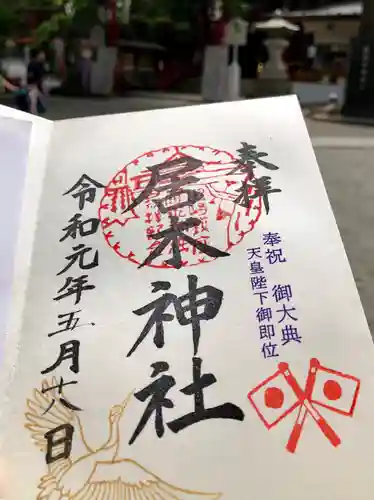 奉拝
奉祝 御大典
天皇陛下御即位
居木神社
令和元年五月廿八日